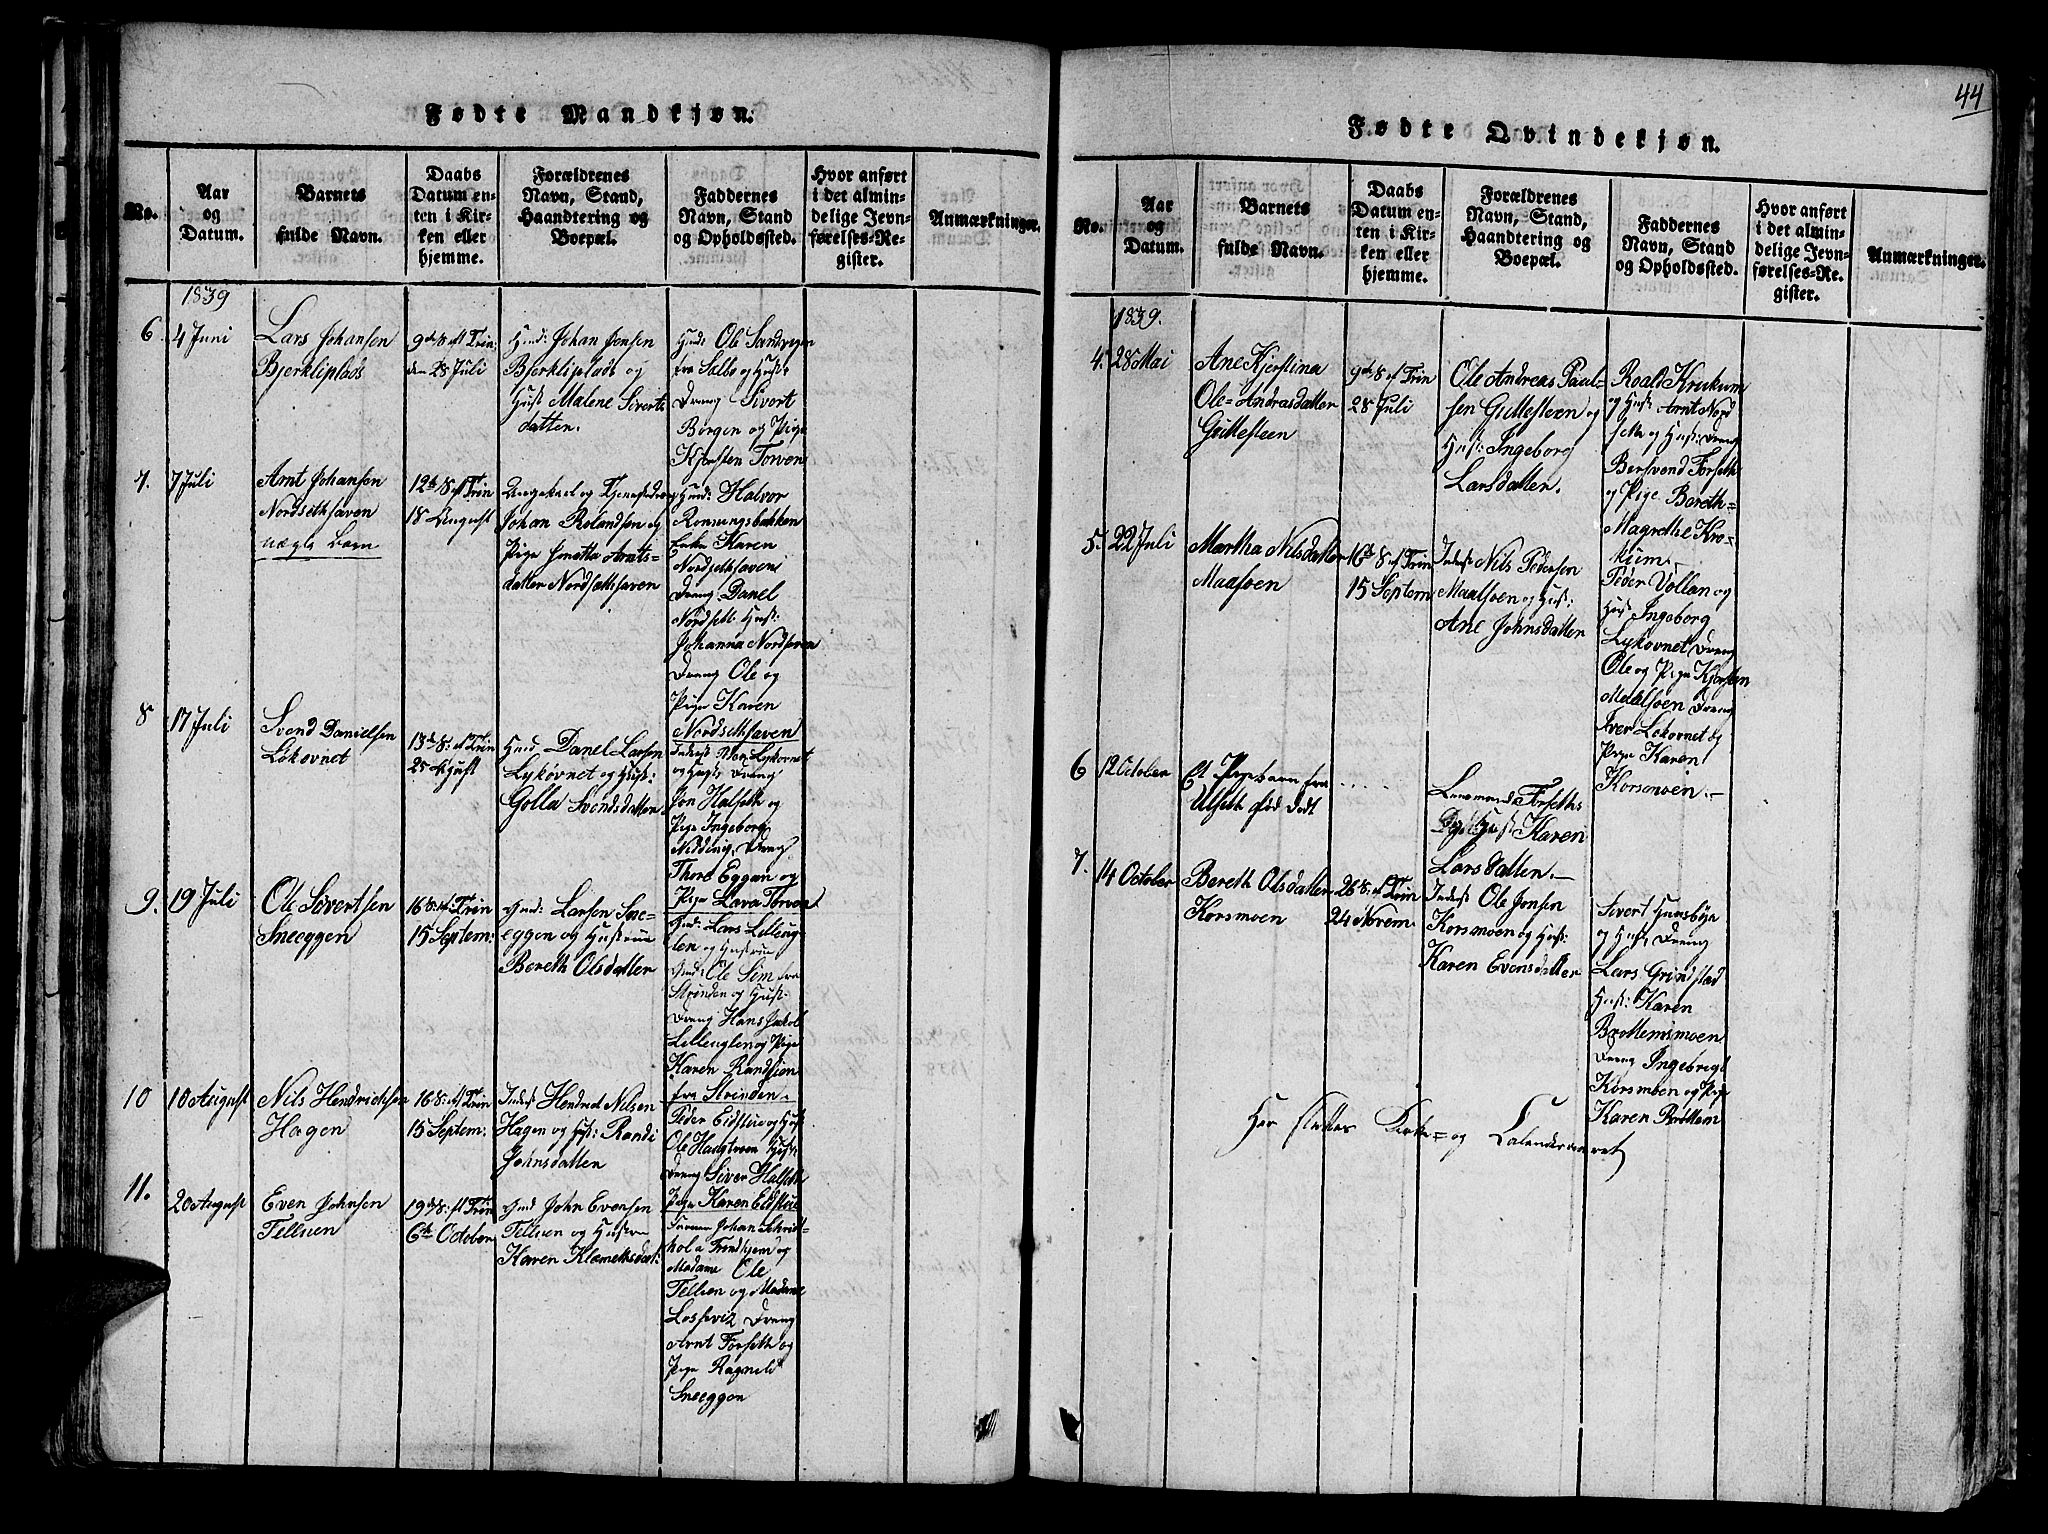 44
Fødte Mandkjøn.
No.
Aar og Datum.
Barnets fulde Navn.
Daabs Datum enten i Kirken eller hjemme.
Forældrenes Navn, Stand, Haandtering og Boepæl.
Faddernes Navn, Stand og Opholdssted.
Hvor anført i det almindelige Jevnførelses-Register.
Anmærkninger.
1839
6
4 Juni
Lars Johansen
Bjerkliplads
9de S. eft Trin:
den 28 Juli
Husm: Johan Jonsen
Bjerkliplads og
Hust Malene Siverts
datter.
Ole Sandvigen
fra Selbo og Hust:
Dreng Sivort
Borgen og Pige
Kjersten Torven
7.
7 Juli
Arnt Johansen
Nordsethsaven
uægte Barn
12te S. eft Trin
18 August
Ungekarl og
Johan Rolandsen og
Pige Arnts-
datter Nordsethsaven
Halvor
Ronsungsbakken
Enke Karen
Nordsethsaven
Dreng Danel
Nordseth Hust:
Johanna Nordsaven
Dreng Ole og
Pige Karen
Nordsethsaven
8
17 Juli
Svend Danielsen
Lökovnet
13de S: eft Trin
25 August
Danel Larsen
Lykovnet og Hust:
Golla Svendsdatter
Lykovnet
og Hust: Dreng
Jon Halseth og
Pige Ingeborg
Dreng
Thore Eggan og
Pige Torven
9.
19 Juli
Ole Sivertsen
Sneeggen
16 S: eft Trin
15 Septem:
Larsen Sne-
eggen og Hustrue
Bereth Olsdatter
Lars Lilleug-
len og Hustrue
Ole Sim fra
Strinden og Hust:
Dreng Hans Jakob
Lilleuglen og Pige
Karen
fra Strinden.
10
10 August
Nils Hendrichsen
Hagen
16 S: eft Trin
15 Septem:
Inderst Nilsen
Hagen og Hust: Randi
Johnsdatter
Peder Eidstue og Hust
Ole Hust:
Dreng Siver Halseth
Pige Karen Eidstue
11.
20 August
Even Johnsen
Telluen
19de S: eft Trin
6te October
John Evensen
Telluen og Hustrue
Karen Klemetsdat:
Johan
Trondhjem og
Madame Ole
Telluen og Madame
Dreng
Arnt Forseth og
Pige Ragnild
Sneeggen
Fødte Qvindekjøn.
No.
Aar og Datum.
Barnets fulde Navn.
Daabs Datum enten i Kirken eller hjemme.
Forældrenes Navn, Stand, Haandtering og Boepæl.
Faddernes Navn, Stand og Opholdssted.
Hvor anført i det almindelige Jevnførelses-Register.
Anmærkninger.
1839.
4.
28 Mai
Ane Kjerstina
Ole-Andrasdatter
Gullesteen
9de S. eft Trin
28 Juli
Ole Andreas Paul-
sen Gullesteen og
Hust: Ingeborg
Larsdatter.
Roald Krokum
og Hust: Arnt Nord
seth og Hust: Dreng
Bersvend Forseth
og Pige Bereth=
Magrethe Kro-
kum.
5.
22 Juli
Martha Nilsdatter
Maasoen
16de S. eft Trin
15 Septem
Inderst Nils Pedersen
Maalsoen og Hust:
Ane Johnsdatter
Peder Vollan og
Hust Ingeborg
Lykovnet Dreng
Ole og Pige Kjersten
Maalsoen Dreng
Iver Lökovnet og
Pige Karen
Korsmoen.
6
12 October
Et Pigebarn fra
Ulseth fød dødt
....
Lensmand Forseths
Hust Karen
Larsdatter.
7.
14 October
Bereth Olsdatter
Korsmoen
26 S: eft Trin
24 Novem.
Inderst Ole Jonsen
Korsmoen og Hust:
Karen Evensdatter
Sivert
og Hust, Dreng
Lars Grindstad
Hust: Karen
Brottemsmoen
Dreng Ingebrigt
Korsmoen og Pige
Karen Brottem
Her sluttes Kirke= og Calenderaaret